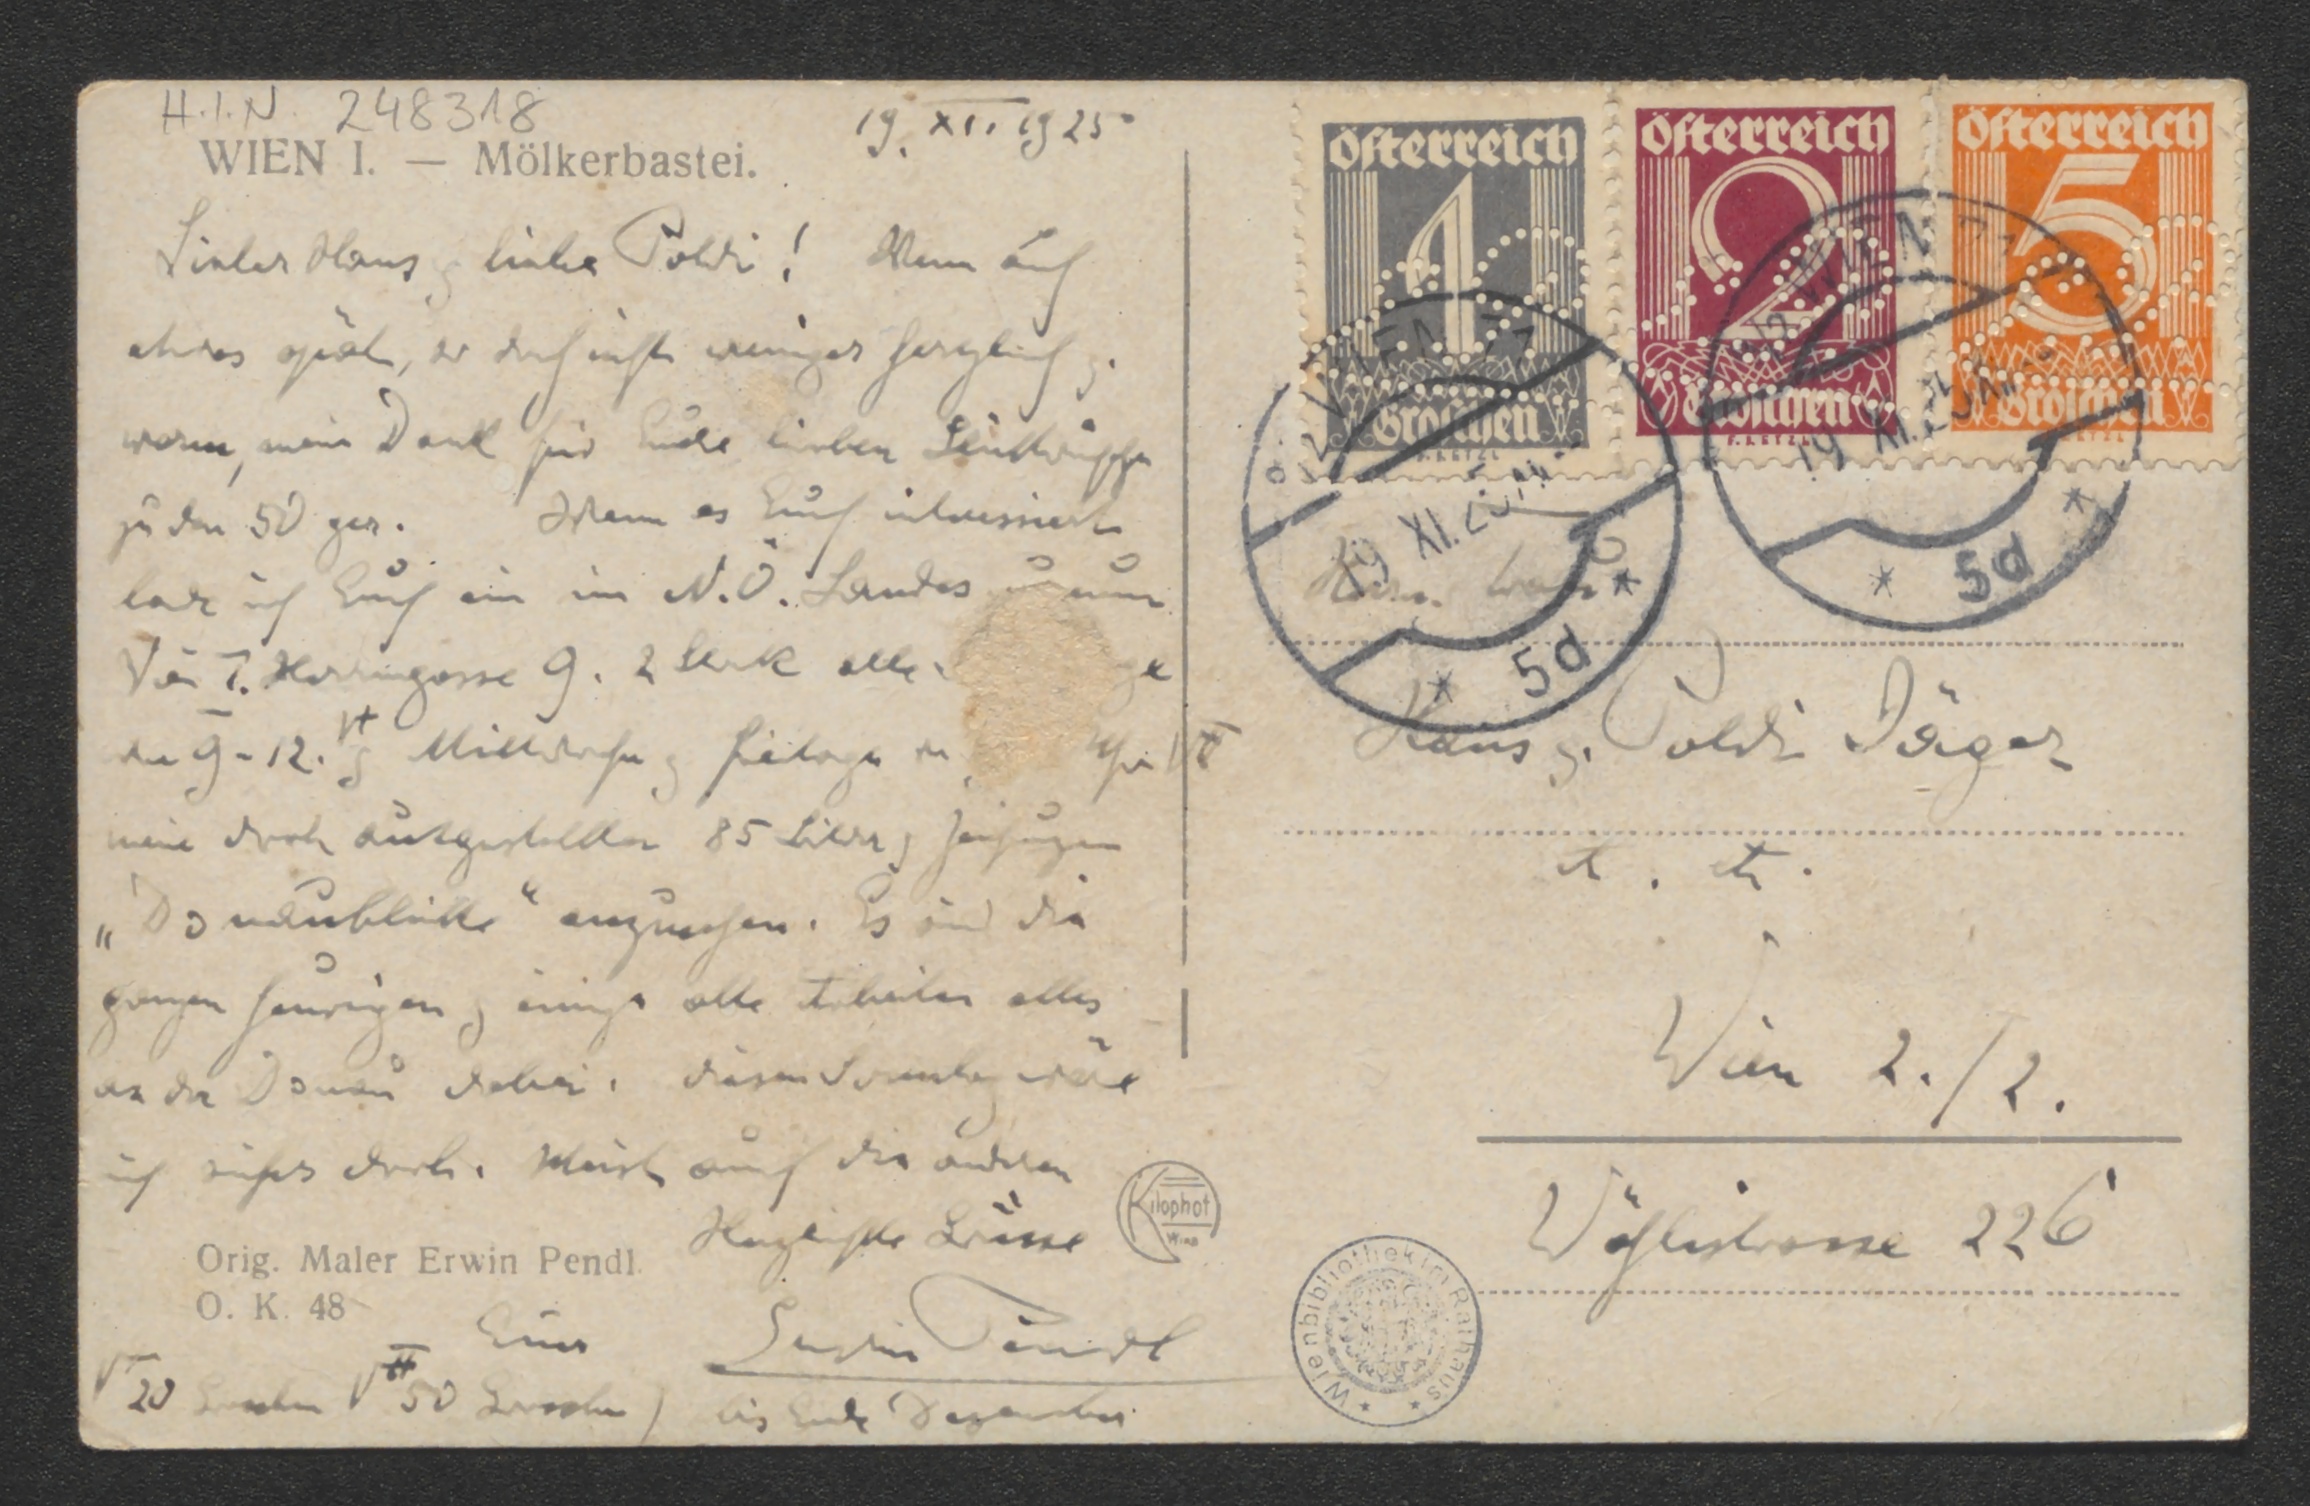 H.I.N. 248318
WIEN I. — Mölkerbastei.
19. XI. 1925
Lieber Hans & liebe Poldi! Wenn auch
etwas spät, so doch nicht weniger herzlich &
warm, mein Dank für Eure lieben Glückwünsche
zu den 50 ger. Wenn es Euch interessiert
lade ich Euch ein im N.Ö. Landes
Wien I. Herrengasse 9. 2 Stock alle
von 9-12. & Mittwoch & Freitag Uhr
meine dort ausgestellten 85 Bilder &
„Donaublicke" anzusehen. Es sind die
ganzen heurigen & einige alte Arbeiten alles
an der Donau dabei. Diesen Sonntag wäre
ich sicher dort. Meist auch die anderen
Herzlichste Grüsse
Kilophot
Wien
Orig. Maler Erwin Pendl.
O. K. 48
Euer Erwin Pendl
20 Groschen 50 Groschen) bis Ende Dezember
Österreich
1
Groschen
Österreich
2
Groschen
Österreich
5
Groschen
WIEN
19 XI. 25
* 5d *
WIEN
19 XI. 25
* 5d *
Hans & Poldi Jäger
Wien 2./2.
Wöhlistrasse 226
Wienbibliothek im Rathaus